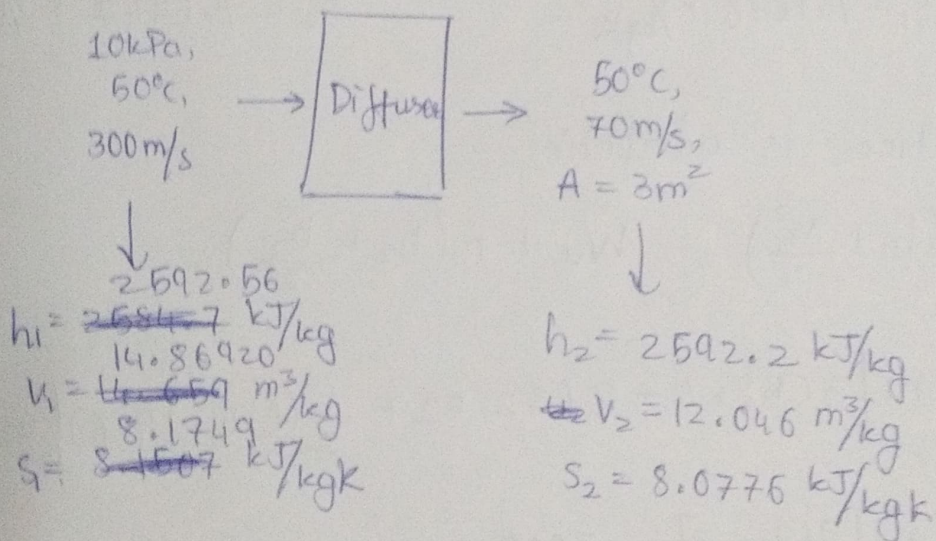 10kPa,
50°C,
300m/s
Diffuser
50°C,
70m/s,
A = 3m²
2592.56
h₁ = 2584.7 kJ/kg
14.86920
V₁ = 14.659 m³/kg
8.1749
S₁ = 8.1507 kJ/kgk
h₂ = 2592.2 kJ/kg
V₂ = 12.046 m³/kg
S₂ = 8.0776 kJ/kgk